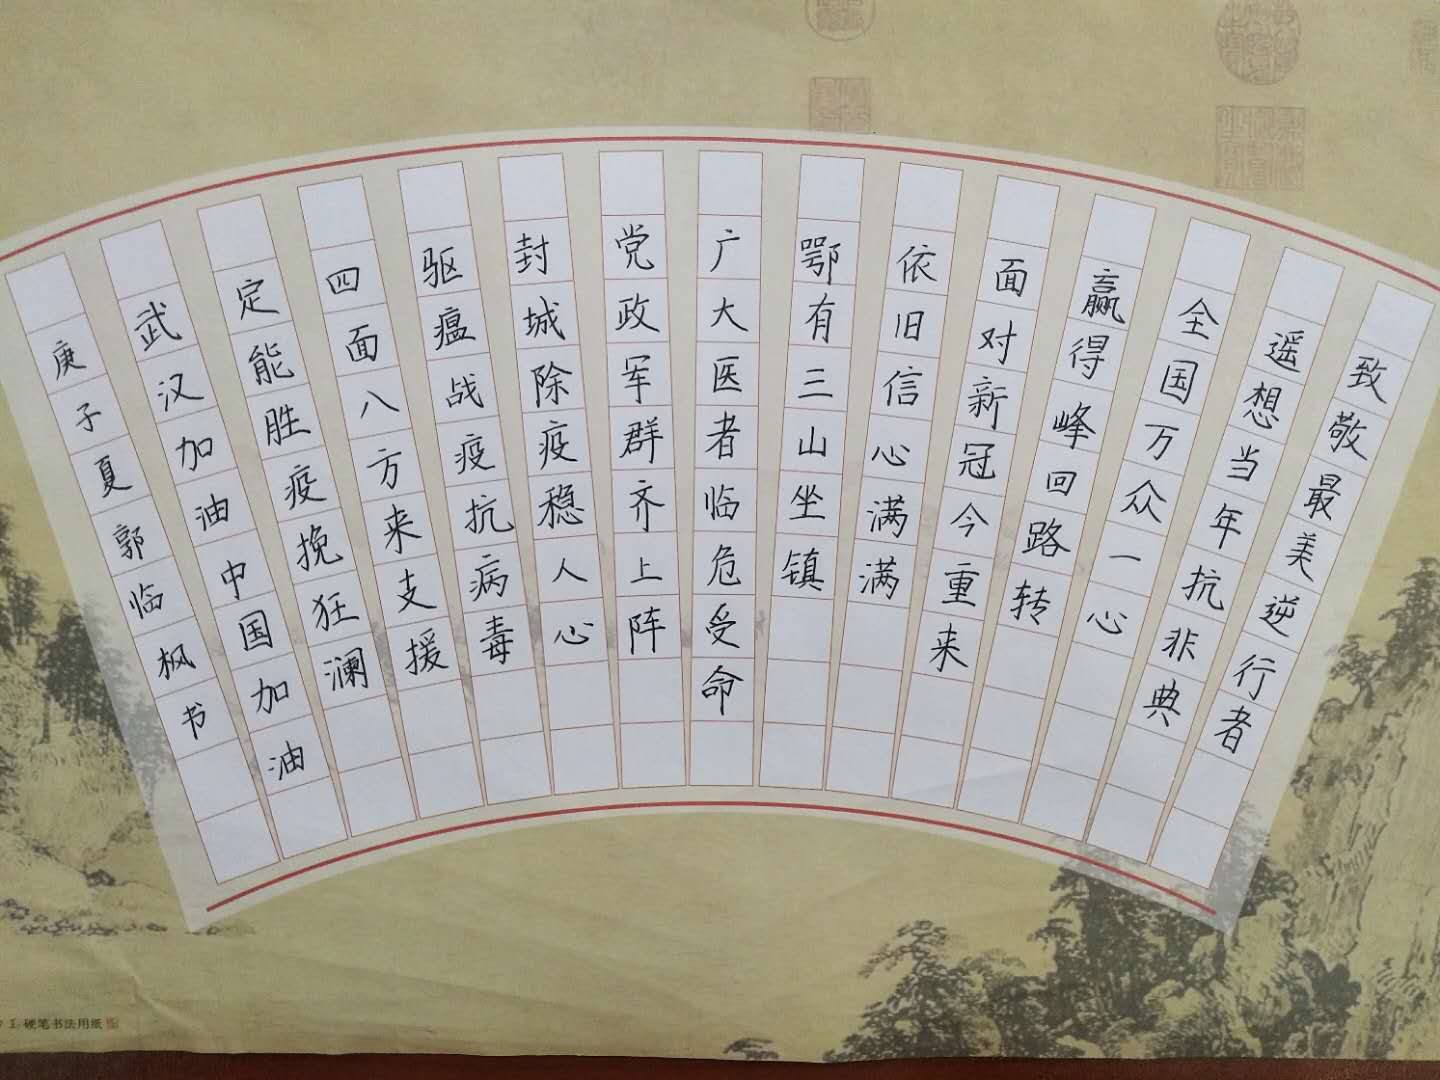 致敬最美逆行者
遥想当年抗非典
全国万众一心
赢得峰回路转
面对新冠今重来
依旧信心满满
鄂有三山坐镇
广大医者临危受命
党政军群齐上阵
封城除疫稳人心
驱瘟战疫抗病毒
四面八方来支援
定能胜疫挽狂澜
武汉加油中国加油
庚子夏郭临枫书
硬笔书法用纸